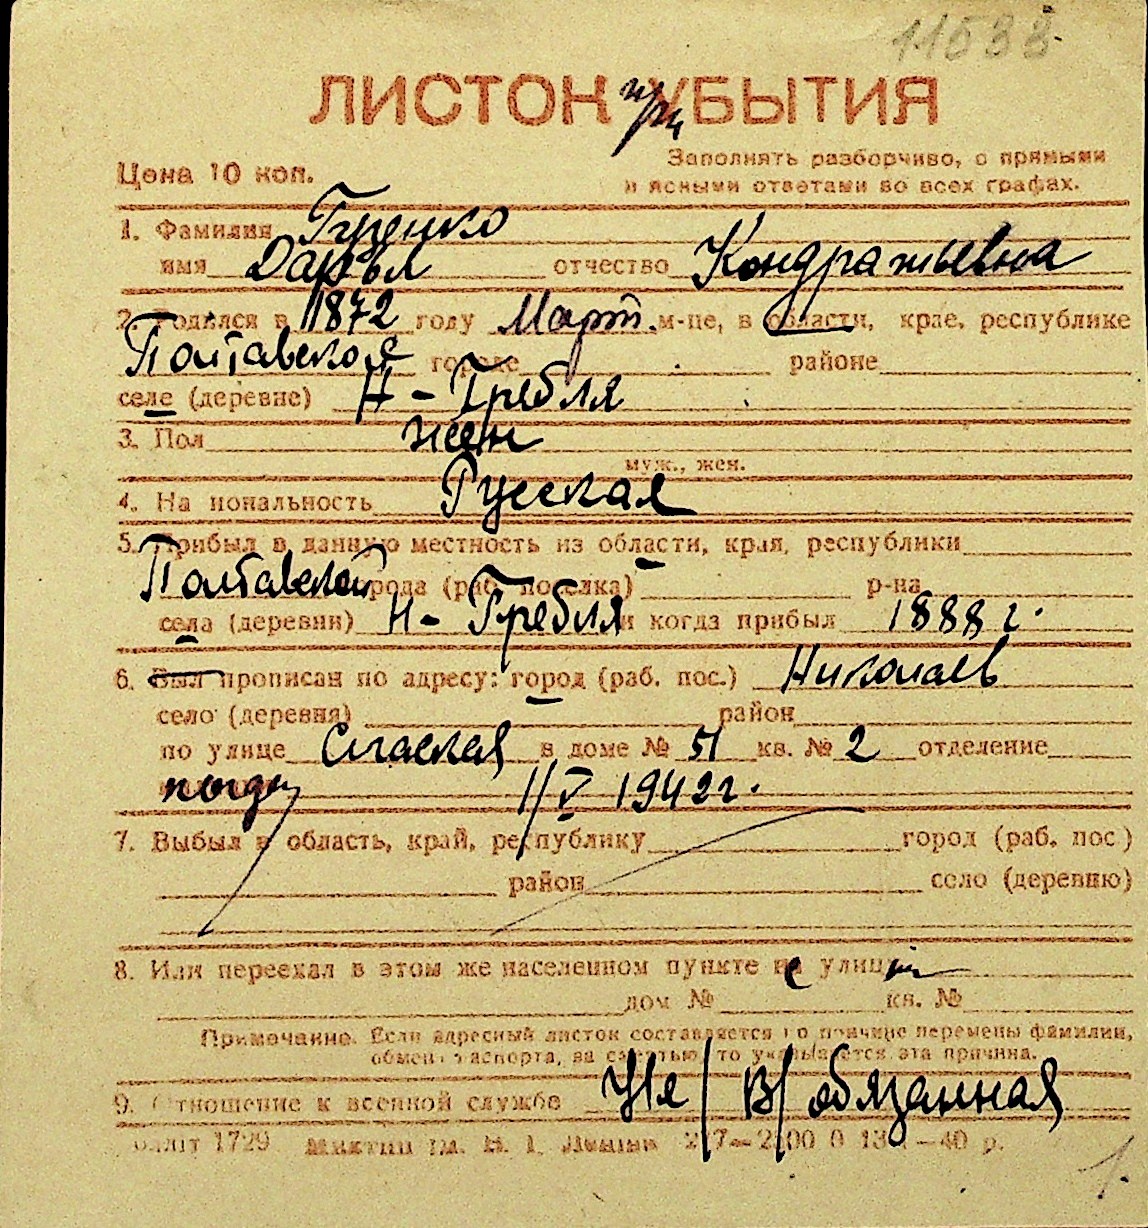 11533
ЛИСТОК УБЫТИЯ
при
Цена 10 коп.
Заполнять разборчиво, с прямыми
и ясными ответами во всех графах.
1. Фамилия Гуренко
имя Дарья отчество Кондратьевна
2. Родился в 1872 году Март м-це, в области, крае, республике
Полтавской городе районе
селе (деревне) Н-Гребля
3. Пол жен
муж., жен.
4. Национальность Русская
5. Прибыл в данную местность из области, края, республики
Полтавской города (раб. поселка) р-на
села (деревни) Н-Гребля и когда прибыл 1888 г.
6. Был прописан по адресу: город (раб. пос.) Николаев
село (деревня) район
по улице Спасская в доме № 51 кв. № 2 отделение
1/V 1942 г.
7. Выбыл в область, край, республику город (раб. пос.)
район село (деревню)
8. Или переехал в этом же населенном пункте на улицу
дом № кв. №
Примечание. Если адресный листок составляется по причине перемены фамилии,
обмена паспорта, за смертью, то указывается эта причина.
9. Отношение к военной службе Н/я В/обязанная
1729
1.